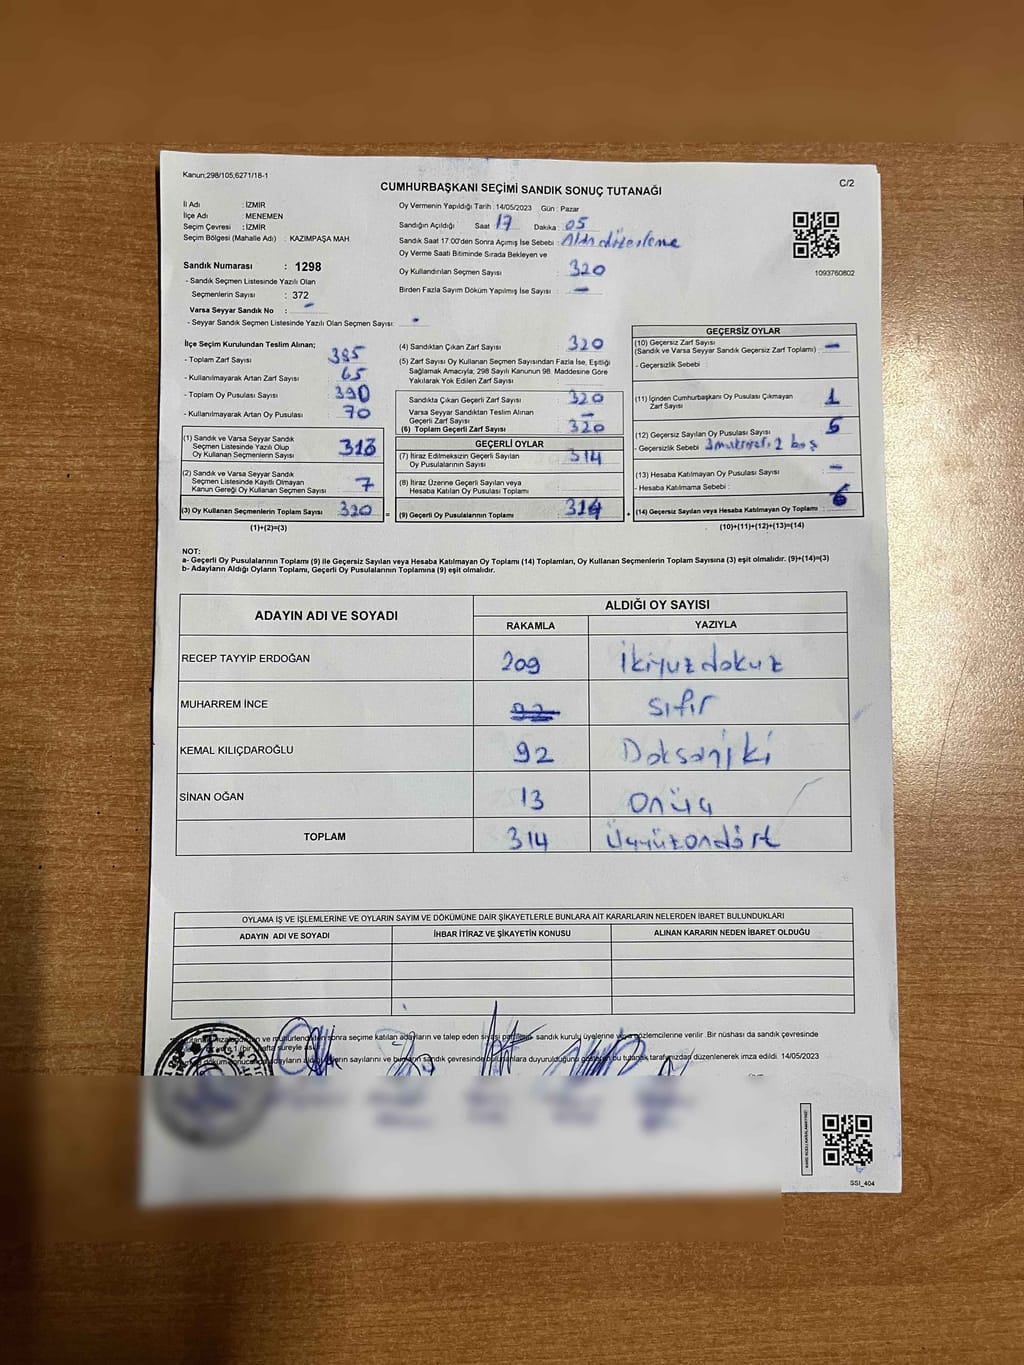 Kanun;298/105,6271/18-1
C/2
CUMHURBAŞKANI SEÇİMİ SANDIK SONUÇ TUTANAĞI
İl Adı : İZMİR
İlçe Adı : MENEMEN
Seçim Çevresi : İZMİR
Seçim Bölgesi (Mahalle Adı) : KAZIMPAŞA MAH.
Sandık Numarası : 1298
- Sandık Seçmen Listesinde Yazılı Olan
Seçmenlerin Sayısı : 372
Varsa Seyyar Sandık No : -
- Seyyar Sandık Seçmen Listesinde Yazılı Olan Seçmen Sayısı:
Oy Vermenin Yapıldığı Tarih : 14/05/2023 Gün : Pazar
Sandığın Açıldığı Saat 17 Dakika : 05
Sandık Saat 17.00'den Sonra Açımış İse Sebebi :
Oy Verme Saati Bitiminde Sırada Bekleyen ve
Oy Kullandırılan Seçmen Sayısı : 320
Birden Fazla Sayım Döküm Yapılmış İse Sayısı : -
1093760802
İlçe Seçim Kurulundan Teslim Alınan;
- Toplam Zarf Sayısı 385
- Kullanılmayarak Artan Zarf Sayısı : 65
- Toplam Oy Pusulası Sayısı : 390
- Kullanılmayarak Artan Oy Pusulası : 70
(1) Sandık ve Varsa Seyyar Sandık
Seçmen Listesinde Yazılı Olup
Oy Kullanan Seçmenlerin Sayısı : 313
(2) Sandık ve Varsa Seyyar Sandık
Seçmen Listesinde Kayıtlı Olmayan
Kanun Gereği Oy Kullanan Seçmen Sayısı : 7
(3) Oy Kullanan Seçmenlerin Toplam Sayısı : 320
(1)+(2)=(3)
(4) Sandıktan Çıkan Zarf Sayısı : 320
(5) Zarf Sayısı Oy Kullanan Seçmen Sayısından Fazla İse, Eşitliği
Sağlamak Amacıyla; 298 Sayılı Kanunun 98. Maddesine Göre
Yakılarak Yok Edilen Zarf Sayısı :
Sandıkta Çıkan Geçerli Zarf Sayısı : 320
Varsa Seyyar Sandıktan Teslim Alınan
Geçerli Zarf Sayısı : -
(6) Toplam Geçerli Zarf Sayısı : 320
GEÇERLİ OYLAR
(7) İtiraz Edilmeksizin Geçerli Sayılan
Oy Pusulalarının Sayısı : 314
(8) İtiraz Üzerine Geçerli Sayılan veya
Hesaba Katılan Oy Pusulası Toplamı :
(9) Geçerli Oy Pusulalarının Toplamı : 314
GEÇERSİZ OYLAR
(10) Geçersiz Zarf Sayısı
(Sandık ve Varsa Seyyar Sandık Geçersiz Zarf Toplamı) : -
- Geçersizlik Sebebi :
(11) İçinden Cumhurbaşkanı Oy Pusulası Çıkmayan
Zarf Sayısı : 1
(12) Geçersiz Sayılan Oy Pusulası Sayısı : 5
- Geçersizlik Sebebi : 2 boş
(13) Hesaba Katılmayan Oy Pusulası Sayısı : -
- Hesaba Katılmama Sebebi :
(14) Geçersiz Sayılan veya Hesaba Katılmayan Oy Toplamı : 6
(10)+(11)+(12)+(13)=(14)
NOT:
a- Geçerli Oy Pusulalarının Toplamı (9) ile Geçersiz Sayılan veya Hesaba Katılmayan Oy Toplamı (14) Toplamları, Oy Kullanan Seçmenlerin Toplam Sayısına (3) eşit olmalıdır. (9)+(14)=(3)
b- Adayların Aldığı Oyların Toplamı, Geçerli Oy Pusulalarının Toplamına (9) eşit olmalıdır.
ADAYIN ADI VE SOYADI ALDIĞI OY SAYISI
RAKAMLA YAZIYLA
RECEP TAYYİP ERDOĞAN 209 İkiyüzdokuz
MUHARREM İNCE 92 sıfır
KEMAL KILIÇDAROĞLU 92 Doksaniki
SİNAN OĞAN 13 onüç
TOPLAM 314 Üçyüzondört
OYLAMA İŞ VE İŞLEMLERİNE VE OYLARIN SAYIM VE DÖKÜMÜNE DAİR ŞİKAYETLERLE BUNLARA AİT KARARLARIN NELERDEN İBARET BULUNDUKLARI
ADAYIN ADI VE SOYADI İHBAR İTİRAZ VE ŞİKAYETİN KONUSU ALINAN KARARIN NEDEN İBARET OLDUĞU
sonra seçime katılan adayların ve talep eden siyasi sandık kurulu üyelerine veya gözlemcilerine verilir. Bir nüshası da sandık çevresinde
adayların sayılarını ve sandık çevresinde duyurulduğunu bu tutanak tarafımızdan düzenlenerek imza edildi. 14/05/2023
SSİ_404